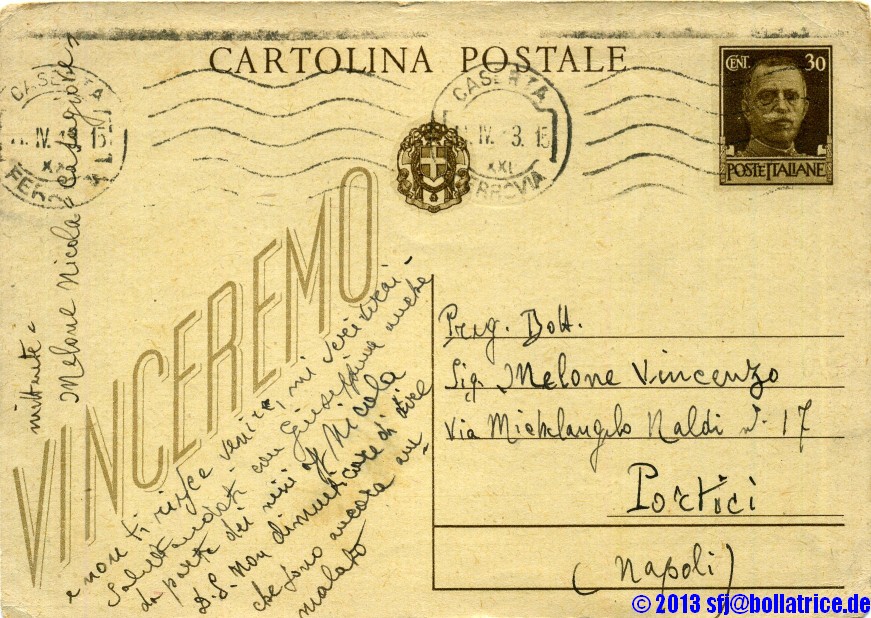 CARTOLINA POSTALE
CENT. 30
POSTE ITALIANE
CASERTA
IV. 15
XXI
FERROVIA
CASERTA
IV. 3. 15
XXI
FERROVIA
VINCEREMO
mittente =
Melone Nicola = Casagiove
Preg. Dott.
Sig. Melone Vincenzo
Via Michelangelo Naldi N. 17
Portici
(Napoli)
e non ti riesce venire, mi scriverai -
Salutandoti con Giuseppina anche
da parte dei miei Nicola
D.S. Non dimenticare di
che sono ancora
malato
© 2013 sfj@bollatrice.de